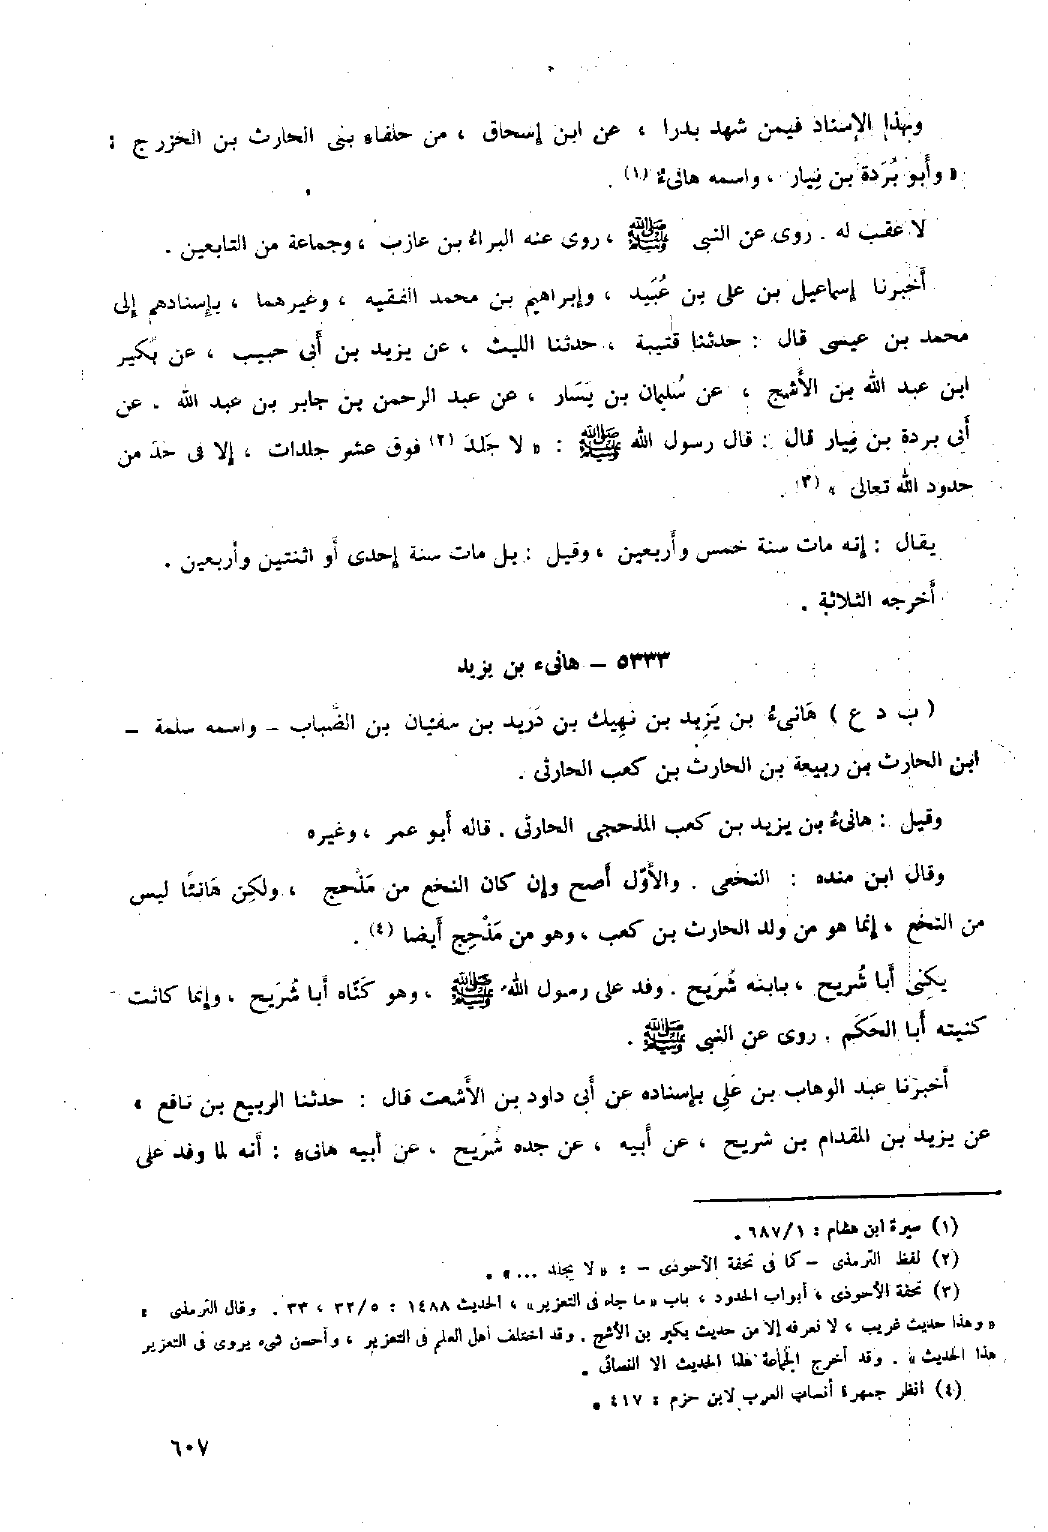 وبهذا الإسناد فيمن شهد بدرا ، عن ابن إسحاق ، من حلفاء بنى الحارث بن الخزرج :
« وأَبو بُرَدة بن نِيار ، واسمه هانىءٌ (١) .
لا عقب له . روى عن النبى ﷺ ، روى عنه البراءُ بن عازب ، وجماعة من التابعين .
أَخبرنا إسماعيل بن على بن عُبَيد ، وإبراهيم بن محمد الفقيه ، وغيرهما ، بإسنادهم إلى
محمد بن عيسى قال : حدثنا قتيبة ، حدثنا الليث ، عن يزيد بن أَبى حبيب ، عن بُكَير
ابن عبد الله بن الأَشج ، عن سُليمان بن يَسَار ، عن عبد الرحمن بن جابر بن عبد الله . عن
أَبى بردة بن نِيار قال : قال رسول الله ﷺ : « لا جَلدَ (٢) فوق عشر جلدات ، إلا فى حَدّ من
حدود الله تعالى » (٣) .
يقال : إنه مات سنة خمس وأَربعين ، وقيل : بل مات سنة إحدى أَو اثنتين وأربعين .
أَخرجه الثلاثة .
٥٣٣٣ – هانىء بن يزيد
( ب د ع ) هَانىءُ بن يَزِيد بن نَهِيك بن دَريد بن سفيان بن الضَّباب – واسمه سلمة –
ابن الحارث بن ربيعة بن الحارث بن كعب الحارثى .
وقيل : هانىءُ بن يزيد بن كعب المذحجى الحارثى . قاله أَبو عمر ، وغيره
وقال ابن منده : النخعى . والأَوّل أَصح وإن كان النخع من مَذْحج ، ولكن هَانئًا ليس
من النخع ، إنما هو من ولد الحارث بن كعب ، وهو من مَذْحِج أَيضا (٤) .
يكنى أَبا شُريح ، بابنه شُرَيح . وفد على رسول الله ﷺ ، وهو كَنّاه أَبا شُرَيح ، وإنما كانت
كنيته أَبا الحَكَم . روى عن النبى ﷺ .
أَخبرنا عبد الوهاب بن عَلِى بإسناده عن أَبى داود بن الأَشعث قال : حدثنا الربيع بن نافع ،
عن يزيد بن المقدام بن شريح ، عن أَبيه ، عن جده شُرَيح ، عن أَبيه هانىء : أَنه لما وفد على
(١) سيرة ابن هشام : ٦٨٧/١ .
(٢) لفظ الترمذى – كما فى تحفة الأحوذى – : « لا يجلد ... » .
(٣) تحفة الأحوذى ، أبواب الحدود ، باب « ما جاء فى التعزير » ، الحديث ١٤٨٨ : ٣٢/٥ ، ٣٣ . وقال الترمذى :
« وهذا حديث غريب ، لا نعرفه إلا من حديث بكير بن الأشج . وقد اختلف أهل العلم فى التعزير ، وأحسن شىء يروى فى التعزير
هذا الحديث » . وقد أخرج الجماعة هذا الحديث الا النسائى .
(٤) انظر جمهرة أنساب العرب لابن حزم : ٤١٧ .
٦٠٧